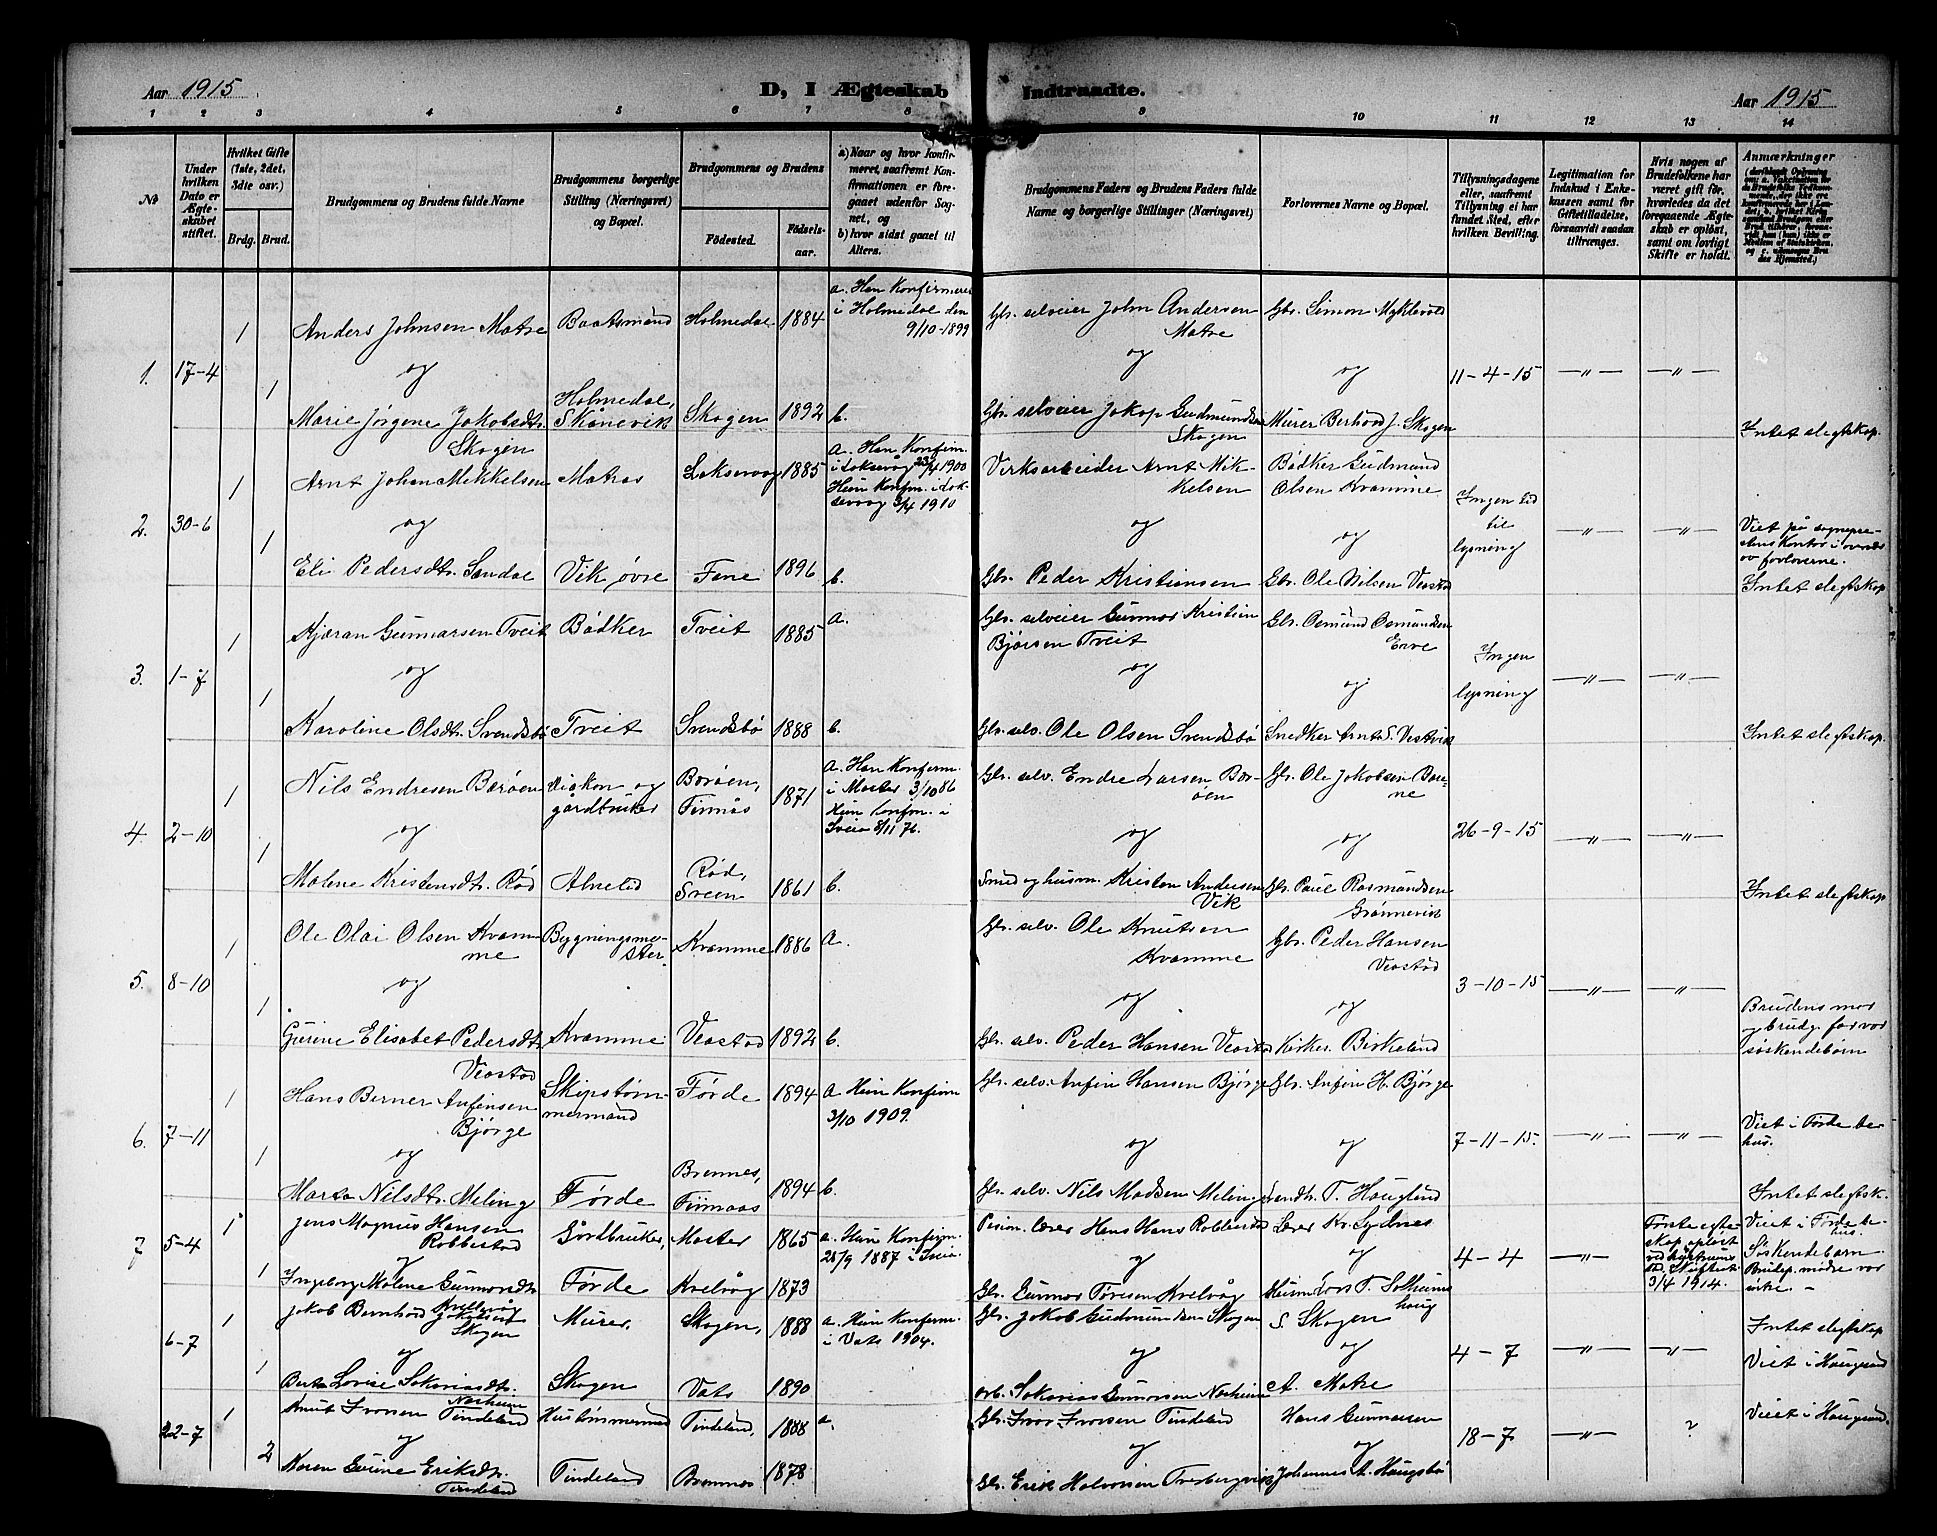 Aar 1915
D, I Ægteskab Indtraadte.
Aar 1915
1 2 3 4 5 6 7 8 9 10 11 12 13 14
№
Under hvilken Dato er Ægteskabet stiftet.
Hvilket Gifte (1ste, 2det, 3dte osv.)
Brdg. Brud.
Brudgommens og Brudens fulde Navne
Brudgommens borgerlige Stilling (Næringsvei) og Bopæl.
Brudgommens og Brudens
Fødested. Fødselsaar.
a) Naar og hvor konfirmeret, saafremt Konfirmationen er foregaaet udenfor Sognet, og
b) hvor sidst gaaet til Alters.
Brudgommens Faders og Brudens Faders fulde Navne og borgerlige Stillinger (Næringsvei)
Forlovernes Navne og Bopæl.
Tillysningsdagene eller, saafremt Tillysning ei har fundet Sted, efter hvilken Bevilling.
Legitimation for Indskud i Enkekassen samt for Giftetilladelse, forsaavidt saadan tiltrænges.
Hvis nogen af Brudefolkene har været gift før, hvorledes da det foregaaende Ægteskab er opløst, samt om lovligt Skifte er holdt.
Anmærkninger
1. 17-4
1 Anders Johnsen Matre Baatsmand Holmedal 1884 a. Han Konfirmeret i Holmedal den 9/10-1899 Gbr. selveier John Andersen Matre Gbr. Simon Myklevold
og og og 11-4-15 —〃— —〃—
1 Marie Jørgene Jakobsdtr. Skogen Holmedal, Skånevik Skogen 1892 b. Gbr. selveier Jakop Gudmundsen Skogen Murer Berhard J. Skogen Intet slegtskap.
2. 30-6
1 Arnt Johan Mikkelsen Matros Laksevaag 1885 a. Han Konfirm. i Laksevåg 23/4 1900 Hun Konfm. i Laksevaag 3/4 1910 Verksarbeider Arnt Mikkelsen Bødker Gudmund Olsen Kvamme
og og og Ingen tid til lysning —〃— —〃— Viet på sogneprestens Kontor i overvær av forloverne.
1 Eli Pedersdtr. Sandal Vik øvre Fane 1896 b. Gbr. Peder Kristiansen Gbr. Ole Nilsen Veastad Intet slegtskap
3. 1-7
1 Kjæran Gunnarsen Tveit Bødker Tveit 1885 a. Gbr. selveier Gunnar Kristian Bjørsen Tveit Gbr. Osmund Osmundsen Erve
og og og Ingen lysning —〃— —〃—
1 Karoline Olsdtr. Svendsbø Tveit Svendsbø 1888 b. Gbr. selv. Ole Olsen Svendsbø Snedker Arnt S. Vestvik Intet slegtskap.
4. 2-10
1 Nils Endresen Børøen Diakon og gårdbruker Børøen, Finnås 1871 a. Han Konfirm. i Moster 3/10 86 Hun konfm. i Sveio 5/11 76. Gbr. selv. Endre Larsen Børøen Gbr. Ole Jakobsen
og og og 26-9-15 —〃— —〃—
1 Malene Kristensdtr. Rød Alnestad Rød, Sveen 1861 b. Smed og husm. Kristen Andersen Vik Gbr. Paul Rasmundsen Grønnevik Intet slegtskap
5. 8-10
1 Ole Olai Olsen Kvamme Bygningsmester Kvamme 1886 a. Gbr. selv. Ole Knutsen Kvamme Gbr. Peder Hansen Veastad
og og og 3-10-15 —〃— —〃—
1 Gurine Elisabet Pedersdtr. Veastad Kvamme Veastad 1892 b. Gbr. selv. Peder Hansen Veastad Kirker. Birkeland Brudens mor og brudg. far var søskendebørn
6. 7-11
1 Hans Berner Anfinsen Bjørge Skipstømmermand Førde 1894 a. Hun Konfirm 3/10 1909. Gbr. selv. Anfin Hansen Bjørge Gbr. Anfin H. Bjørge
og og og 7-11-15. —〃— —〃— Viet i Førde bedehus.
1 Marta Nilsdtr. Meling Førde Bremnes, Finnaas 1894 b. Gbr. selv. Nils Madsen Meling T. Hauglund Intet slegtsk.
7 5-4
1 Jens Magnus Hansen Robbestad Gårdbruker, Moster 1865 a. Hun Konfirm. 25/9 1887 i Sveio Pesion. lærer Hans Hans. Robbestad Lærer Kr. Sydnes
og og og 4-4 —〃— Første egteskap opløst ved hustruens død. Skiftet 3/4 1914. Viet i Førde behus. Søskendebarn Brudep. mødre var søstre –
1 Ingeborg Malene Gunnarsdtr. Kvelvåg Førde Kvelvåg 1873 Gbr. Gunnar Toresen Kvelvåg T. Solheimshaug
6-7
1 Jakob Bernhard Jakobsen Skogen Murer, Skogen, 1888 a. Hun Konfirm. i Vats 1904. Gbr. Jakob Gudmundsen Skogen S. Skogen Intet slegtskap
og og og 4-7 —〃— —〃— Viet i Haugesund
1 Berta Lovise Sakariasdtr. Norheim Skogen Vats 1890 arb. Sakarias Gunnarsen Norheim A. Matre
22-7
1 Knut Ivarsen Tindeland Hustømmermand Tindeland, 1888 a. Gbr. Ivar Ivarsen Tindeland Hans Gunnarsen Viet i Haugesund.
og og og 18-7 —〃— ?
2 Karen Gurine Eriksdtr. Tindeland Tindeland Bremnes 1878 Gbr. Erik Halvorsen Johannes A. Haugsbø